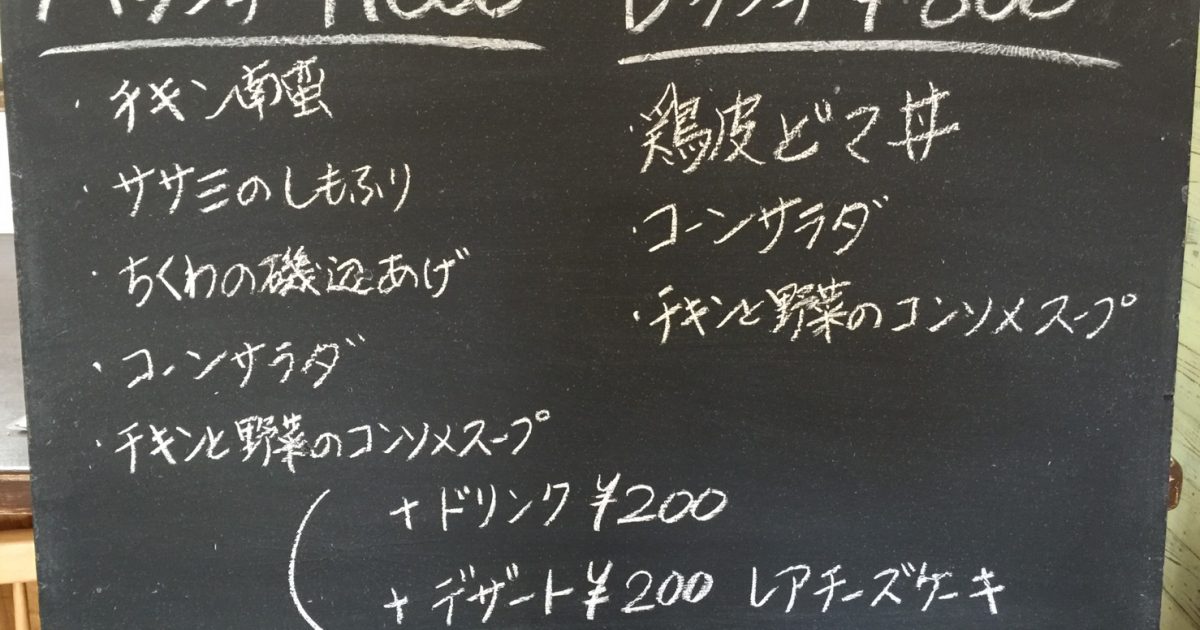 ¥800
・チキン南蛮
・ササミのしもふり
・ちくわの磯辺あげ
・コーンサラダ
・チキンと野菜のコンソメスープ
・鶏皮どて丼
・コーンサラダ
・チキンと野菜のコンソメスープ
+ドリンク ¥200
+デザート ¥200 レアチーズケーキ